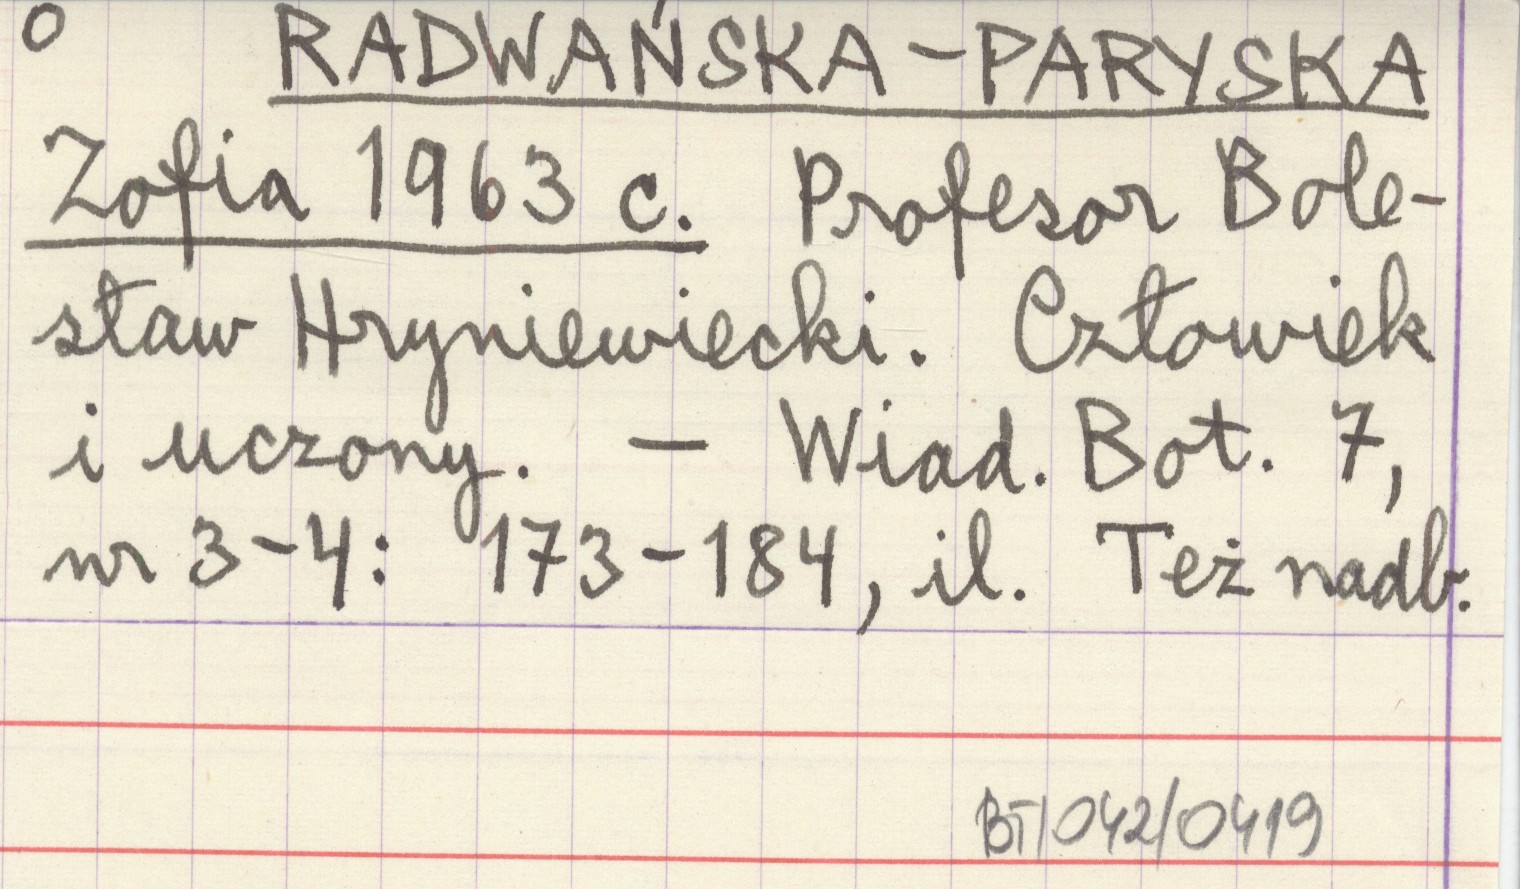 O RADWAŃSKA-PARYSKA
Zofia 1963 c. Profesor Bole-
sław Hryniewiecki. Człowiek
i uczony. — Wiad. Bot. 7,
nr 3-4: 173-184, il. Też nadb.
BT/042/0419